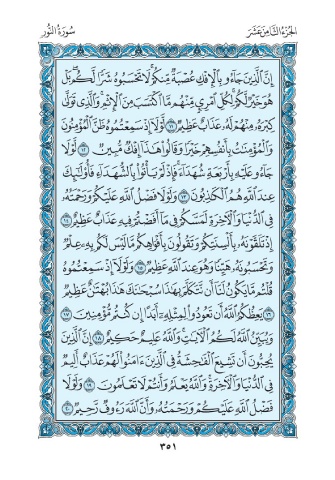 الجزء الثامن عشر
سورة النور
إِنَّ الَّذِينَ جَاءُو بِالْإِفْكِ عُصْبَةٌ مِّنكُمْ لَا تَحْسَبُوهُ شَرًّا لَّكُم بَلْ
هُوَ خَيْرٌ لَّكُمْ لِكُلِّ امْرِئٍ مِّنْهُم مَّا اكْتَسَبَ مِنَ الْإِثْمِ وَالَّذِي تَوَلَّىٰ
كِبْرَهُ مِنْهُمْ لَهُ عَذَابٌ عَظِيمٌ ١١ لَّوْلَا إِذْ سَمِعْتُمُوهُ ظَنَّ الْمُؤْمِنُونَ
وَالْمُؤْمِنَاتُ بِأَنفُسِهِمْ خَيْرًا وَقَالُوا هَٰذَا إِفْكٌ مُّبِينٌ ١٢ لَّوْلَا
جَاءُو عَلَيْهِ بِأَرْبَعَةِ شُهَدَاءَ فَإِذْ لَمْ يَأْتُوا بِالشُّهَدَاءِ فَأُولَٰئِكَ
عِندَ اللَّهِ هُمُ الْكَاذِبُونَ ١٣ وَلَوْلَا فَضْلُ اللَّهِ عَلَيْكُمْ وَرَحْمَتُهُ
فِي الدُّنْيَا وَالْآخِرَةِ لَمَسَّكُمْ فِي مَا أَفَضْتُمْ فِيهِ عَذَابٌ عَظِيمٌ ١٤
إِذْ تَلَقَّوْنَهُ بِأَلْسِنَتِكُمْ وَتَقُولُونَ بِأَفْوَاهِكُم مَّا لَيْسَ لَكُم بِهِ عِلْمٌ
وَتَحْسَبُونَهُ هَيِّنًا وَهُوَ عِندَ اللَّهِ عَظِيمٌ ١٥ وَلَوْلَا إِذْ سَمِعْتُمُوهُ
قُلْتُم مَّا يَكُونُ لَنَا أَن نَّتَكَلَّمَ بِهَٰذَا سُبْحَانَكَ هَٰذَا بُهْتَانٌ عَظِيمٌ
١٦ يَعِظُكُمُ اللَّهُ أَن تَعُودُوا لِمِثْلِهِ أَبَدًا إِن كُنتُم مُّؤْمِنِينَ ١٧
وَيُبَيِّنُ اللَّهُ لَكُمُ الْآيَاتِ وَاللَّهُ عَلِيمٌ حَكِيمٌ ١٨ إِنَّ الَّذِينَ
يُحِبُّونَ أَن تَشِيعَ الْفَاحِشَةُ فِي الَّذِينَ آمَنُوا لَهُمْ عَذَابٌ أَلِيمٌ
فِي الدُّنْيَا وَالْآخِرَةِ وَاللَّهُ يَعْلَمُ وَأَنتُمْ لَا تَعْلَمُونَ ١٩ وَلَوْلَا
فَضْلُ اللَّهِ عَلَيْكُمْ وَرَحْمَتُهُ وَأَنَّ اللَّهَ رَءُوفٌ رَّحِيمٌ ٢٠
٣٥١